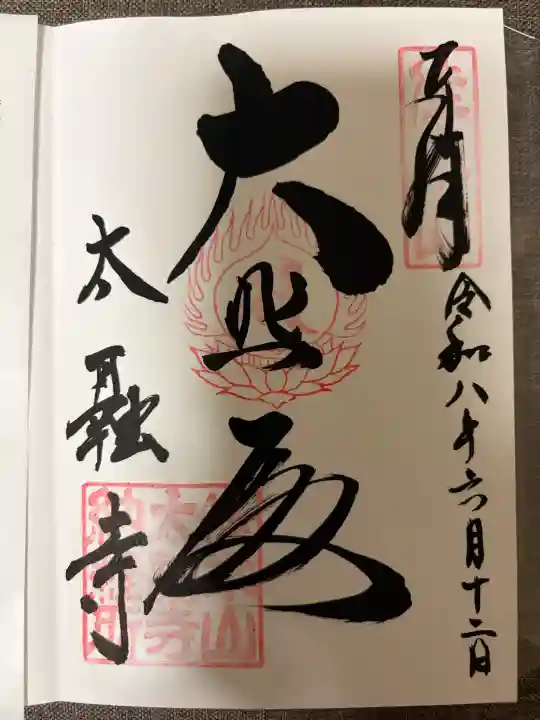 奉拝
令和八年六月十二日
大悲殿
太融寺